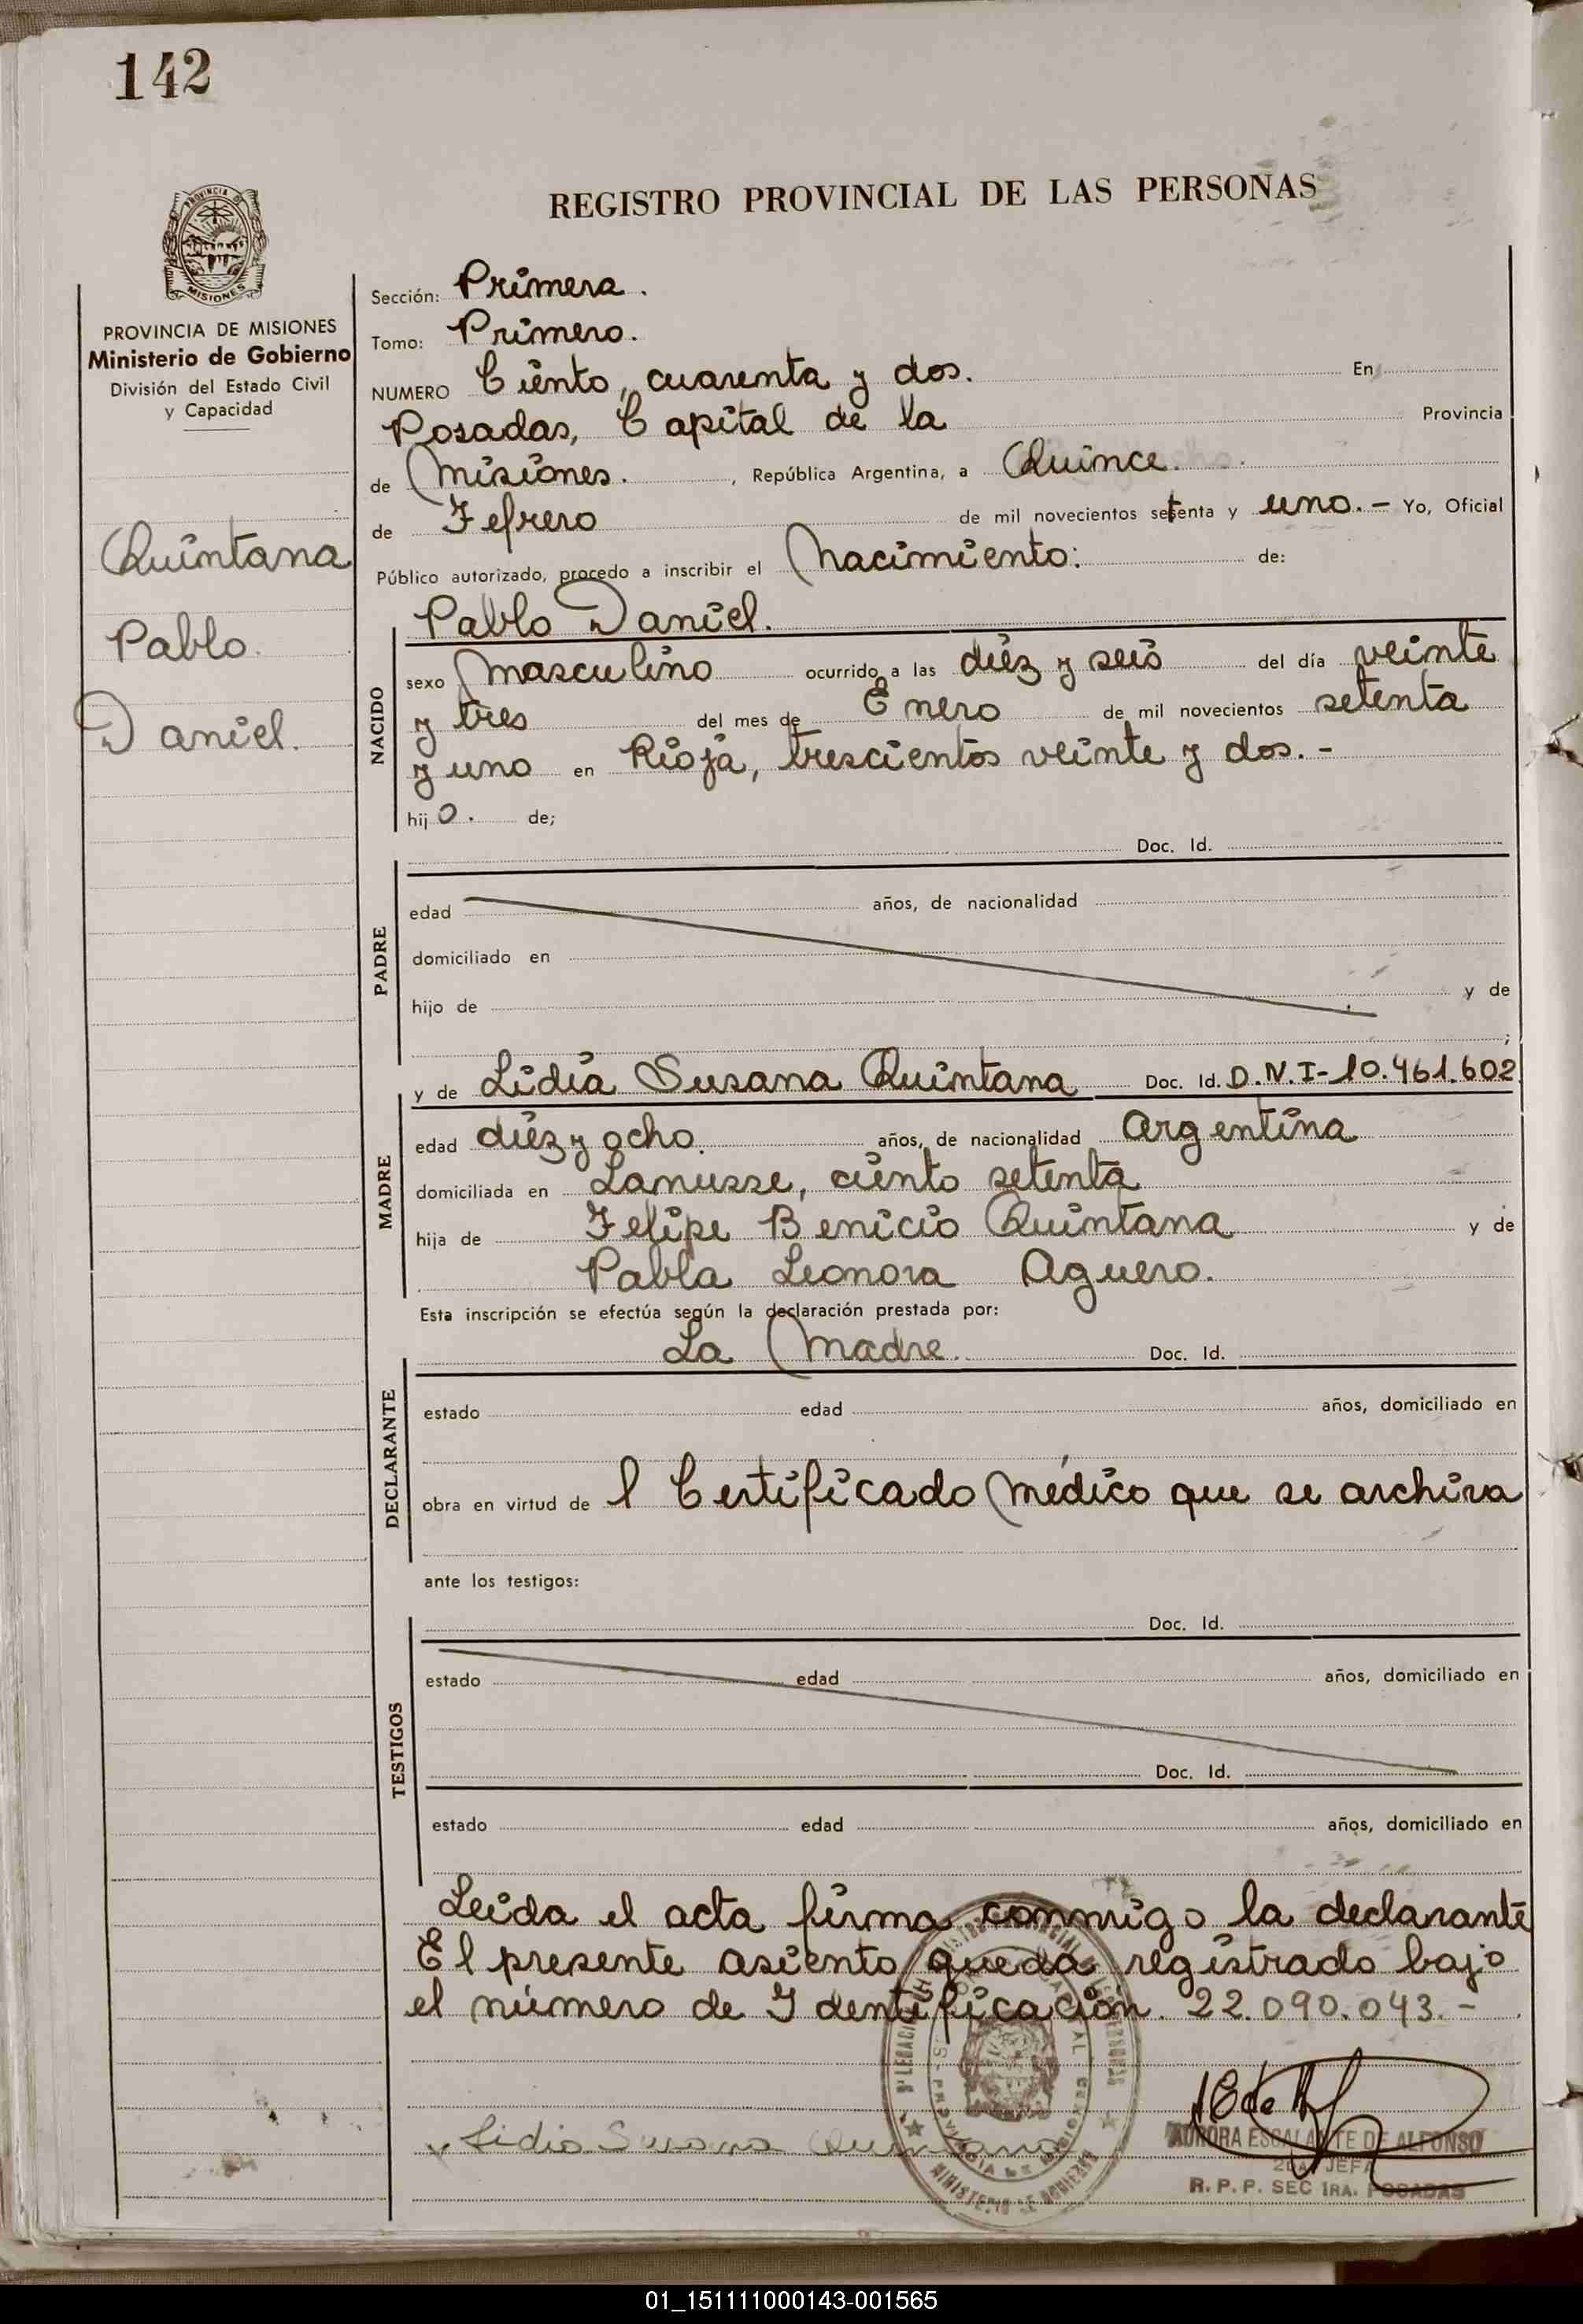 142
REGISTRO PROVINCIAL DE LAS PERSONAS
PROVINCIA
MISIONES
PROVINCIA DE MISIONES
Ministerio de Gobierno
División del Estado Civil
y Capacidad
Quintana
Pablo.
Daniel.
Sección: Primera.
Tomo: Primero.
NUMERO Ciento, cuarenta y dos. En
Posadas, Capital de la Provincia
de Misiones. , República Argentina, a Quince.
de Febrero de mil novecientos setenta y uno.- Yo, Oficial
Público autorizado, procedo a inscribir el Nacimiento: de:
Pablo Daniel.
NACIDO
sexo Masculino ocurrido a las diez y seis del día veinte
y tres del mes de Enero de mil novecientos setenta
y uno en Rioja, trescientos veinte y dos.-
hijo. de;
Doc. Id.
PADRE
edad años, de nacionalidad
domiciliado en
hijo de y de
;
y de Lidia Susana Quintana Doc. Id. D.N.I-10.461.602
MADRE
edad diez y ocho. años, de nacionalidad Argentina
domiciliada en Lanusse, ciento setenta
hija de Felipe Benicio Quintana y de
Pabla Leonora Aguero.
Esta inscripción se efectúa según la declaración prestada por:
La Madre. Doc. Id.
DECLARANTE
estado edad años, domiciliado en
obra en virtud de l Certificado Médico que se archiva
ante los testigos:
Doc. Id.
TESTIGOS
estado edad años, domiciliado en
Doc. Id.
estado edad años, domiciliado en
Leida el acta firma conmigo la declarante
El presente asiento queda registrado bajo
el número de Identificación. 22.090.043.-
Lidia Susana Quintana
MINISTERIO DE GOBIERNO
AURORA ESCALANTE DE ALFONSO
2DA. JEFA
R. P. P. SEC 1RA. POSADAS
01_151111000143-001565